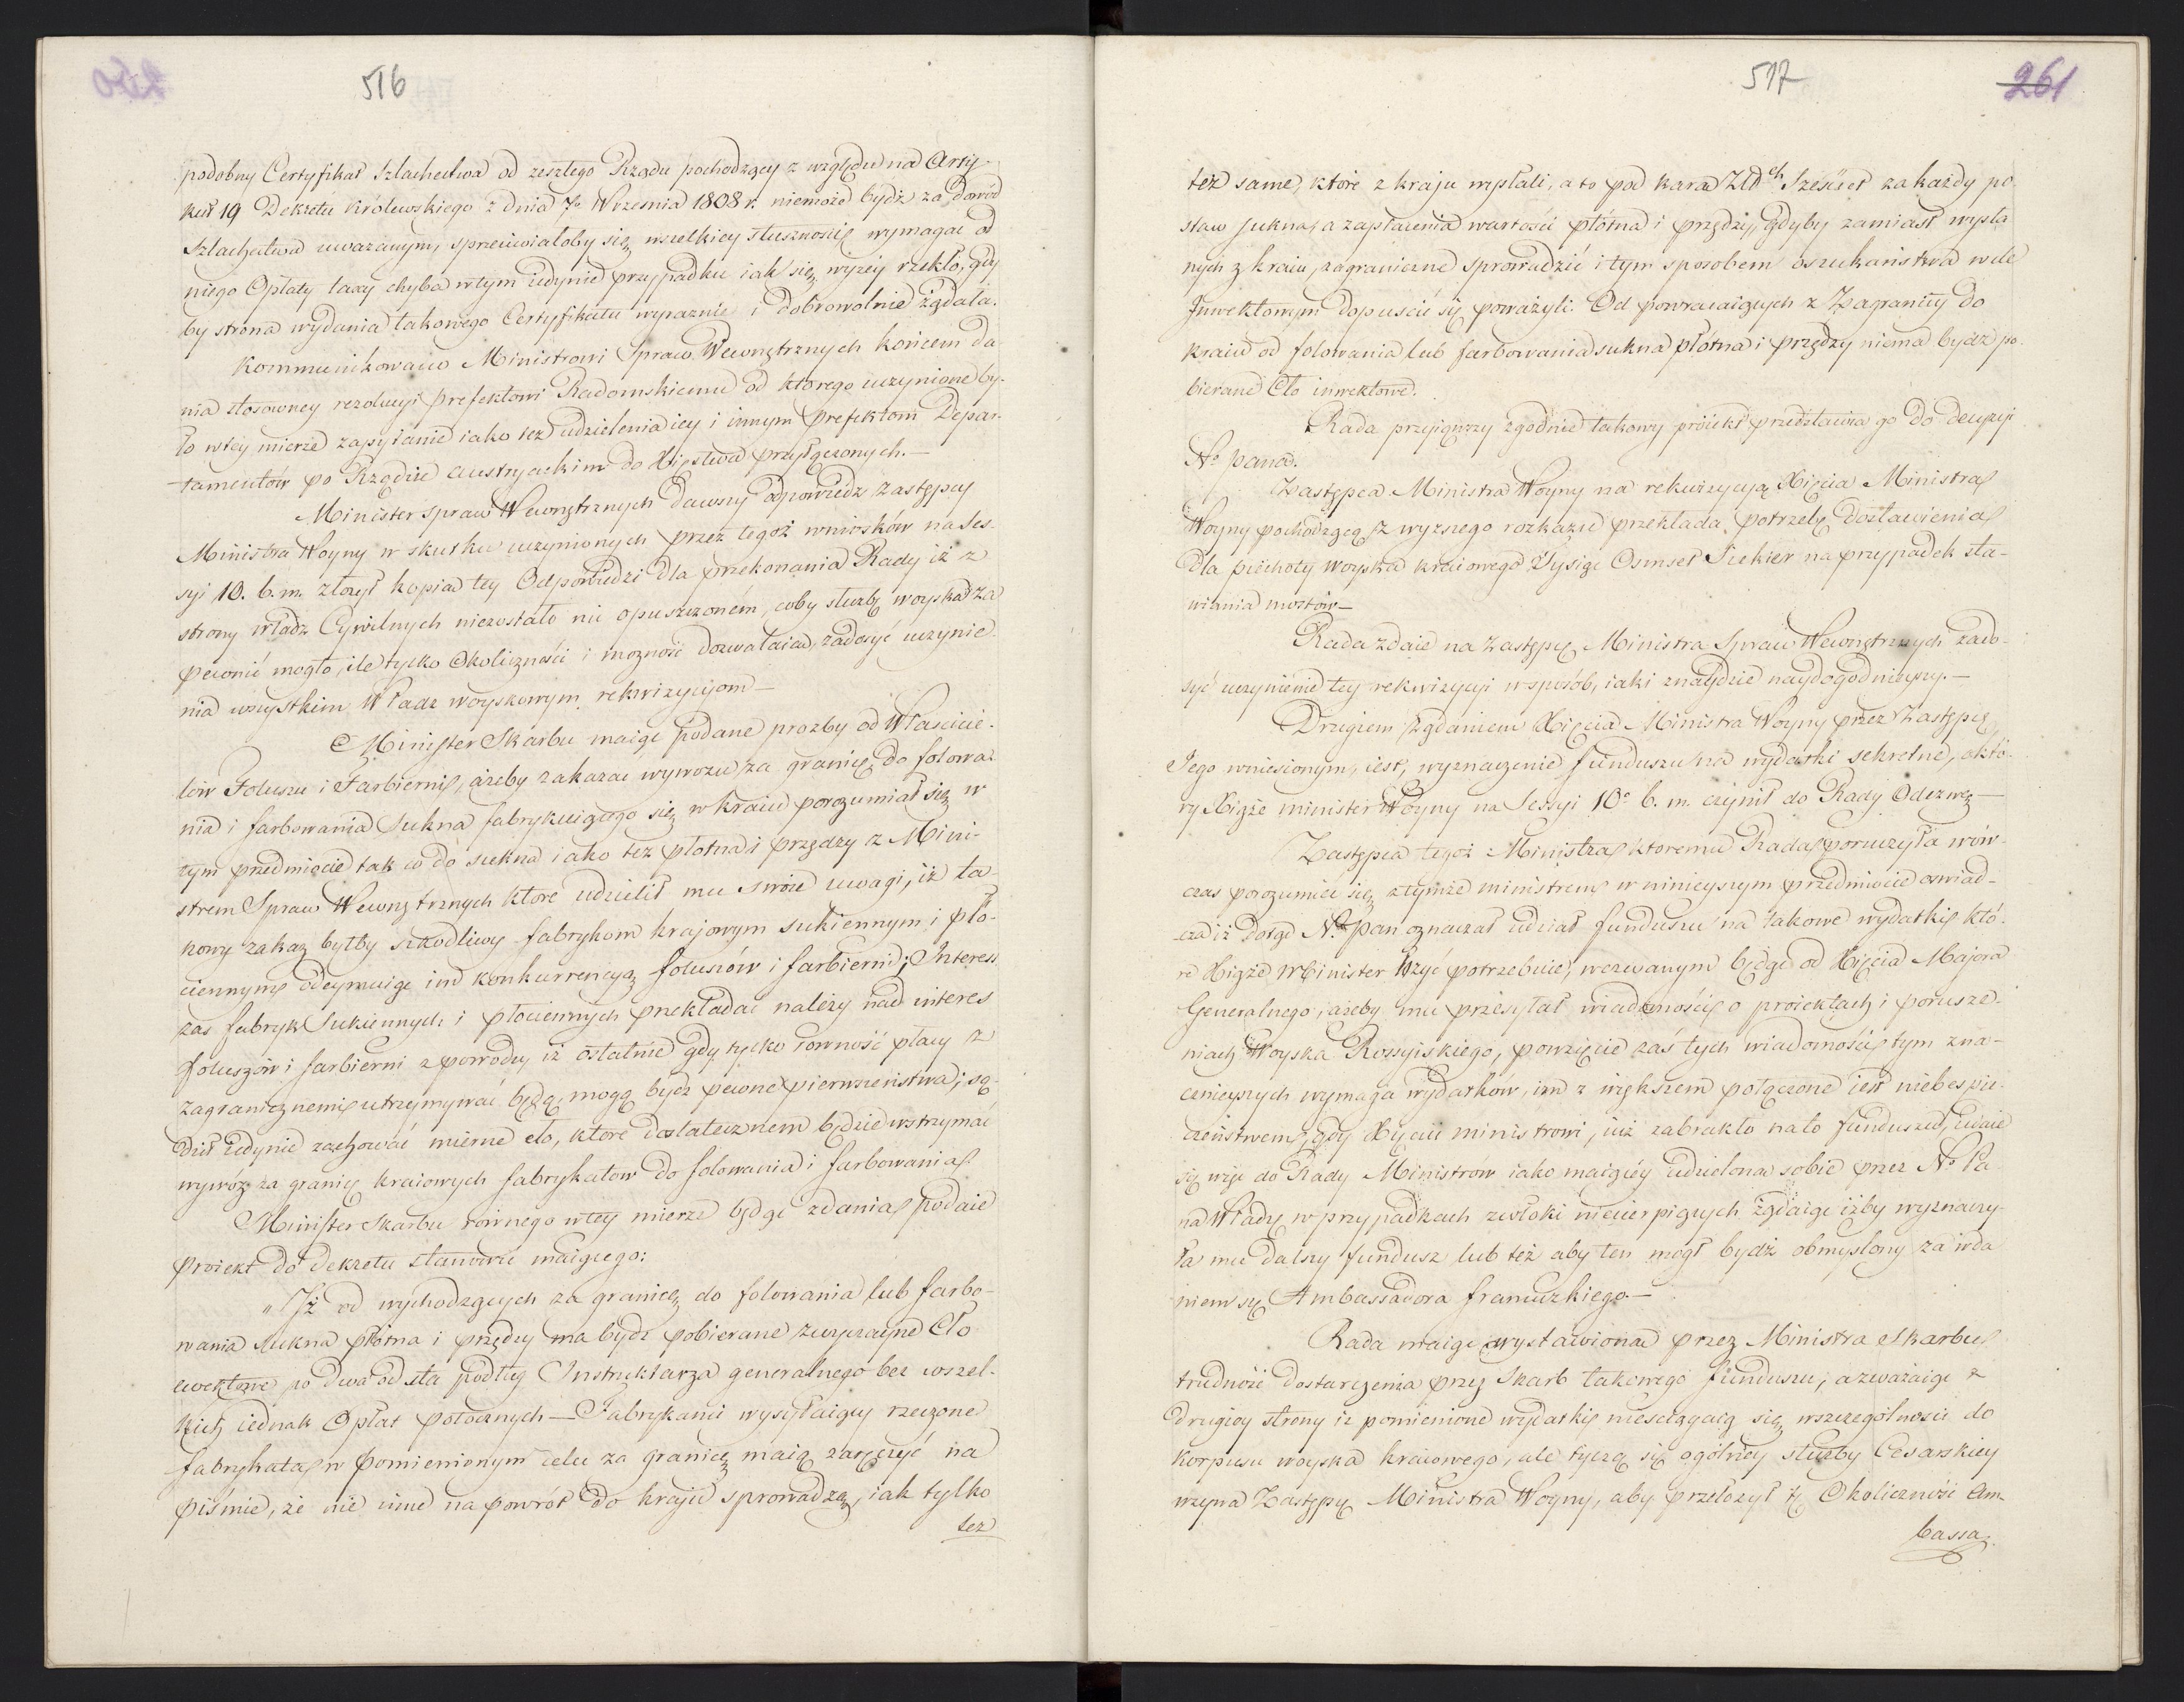 516
podobny Certyfikat Szlachectwa od zeszłego Rządu pochodzący z względu na Arty-
kuł 19 Dekretu Królewskiego z dnia 7o Września 1808 r. niemoże bydź za dowód
Szlachectwa uważanym, sprzeciwiałoby się wszelkiey słuszności wymagać od
niego Opłaty taxy chyba w tym iedynie przypadku iak się wyżey rzekło, gdy
by strona wydania takowego Certyfikatu wyraznie i dobrowolnie żądała.
Kommunikowano Ministrowi Spraw Wewnętrznych końcem da-
nia stosowney rezolucyi Prefektowi Radomskiemu od ktorego uczynione by-
ło w tey mierze zapytanie iako też udzielenia iey i innym Prefektom Depar-
tamentów po Rządzie austryackim do Xięstwa przyłączonych.—
Minister Spraw Wewnętrznych dawszy odpowiedz Zastępcy
Ministra Woyny w skutku uczynionych przez tegoż wniosków na Ses-
syi 10. b. m. złożył kopią tey Odpowiedzi dla przekonania Rady iż z
strony władz Cywilnych niezostało nic opuszczoném, coby służbę woyska za
pewnić mogło, ile tylko Okoliczności i możność dozwalaią, zadosyć uczynie-
nia wszystkim Władz woyskowym rekwizycyiom—
Minister Skarbu maiąc podane prozby od Właścicie-
lów Foluszu i Farbierni, ażeby zakazać wywozu za granicę do folowa-
nia i farbowania Sukna fabrykuiącego się w kraiu porozumiał się w
tym przedmiocie tak co do sukna iako też płotna i przędzy z Mini-
strem Spraw Wewnętrznych ktore udzielił mu swoie uwagi, iż ta-
kowy zakaz byłby szkodliwy fabrykom krajowym sukiennym i płó-
ciennym odeymuiąc im konkurrencyą foluszów i farbierni; Interess
zas fabryk Sukiennych i płociennych przekładać należy nad interes
foluszów i farbierni z powodu iż ostatnie gdy tylko rowność płacy z
zagranicznemi utrzymywać będą, mogą bydz pewne pierwszeństwa; są-
dził iedynie zachować mierne cło, ktore dostatecznem będzie wstrzymać
wywóz za granicę kraiowych fabrykatow do folowania i farbowania.
Minister Skarbu równego w tey mierze będąc zdania podaie
Proiekt do dekretu stanowić maiącego:
„Iż od wychodzących za granicę do folowania lub farbo-
wania sukna płótna i przędzy ma bydz pobierane zwyczayne Cło
ewektowe po dwa od sta podług Instruktarza generalnego bez wszel-
kich iednak Opłat potocznych — Fabrykanci wysyłaiący rzeczone
fabrykata w pomienionym celu za granicę maią zaręczyć na
piśmie, że nie inne na powrót do kraju sprowadzą, iak tylko
też
517
261
też same, które z kraju wysłali, a to pod karą Złd ch Sześciet za każdy po-
staw sukna, a zapłacenia wartości płótna i przędzy, gdyby zamiast wysła
nych z kraiu, zagraniczne sprowadzić i tym sposobem oszukaństwa w cle
Inwektowym dopuścić się poważyli. Od powracaiących z Zagranicy do
kraiu od folowania lub farbowania sukna płótna i przędzy niema bydz po-
bierane Cło inwektowe.
Rada przyiąwszy zgodnie takowy proiekt przedstawia go do decyzyi
No Pana.
Zastępca Ministra Woyny na rekwizycyą Xięcia Ministra
Woyny pochodzącą z wyższego rozkazu przekłada potrzebę dostawienia
dla piechoty woyska kraiowego Tysiąc Osmset Siekier na przypadek sta-
wiania mostów—
Rada zdaie na Zastępcę Ministra Spraw Wewnętrznych zado-
syć uczynienie tey rekwizycyi w sposób, iaki znaydzie naydogodnieyszy.—
Drugiem żądaniem Xięcia Ministra Woyny przez Zastępcę
Jego wniesionym, iest, wyznaczenie funduszu na wydatki sekretne, o któ-
ry Xiąże minister Woyny na Sessyi 10o b. m. czynił do Rady Odezwę—
Zastępca tegoż Ministra któremu Rada poruczyła wów-
czas porozumieć się z tymże ministrem w ninieyszym przedmiocie oswiad-
cza iż dotąd No Pan oznaczał udział funduszu na takowe wydatki, któ-
re Xiąże Minister Użyć potrzebuie, wezwanym będąc od Xięcia Majora
Generalnego, ażeby mu przesyłał wiadomości o proiektach i porusze-
niach Woyska Rossyiskiego, powzięcie zaś tych wiadomości tym zna-
cznieyszych wymaga wydatków, im z większem połączone iest niebespie-
czeństwem, gdy Xięciu ministrowi, iuż zabrakło na to funduszu, udaie
się więc do Rady Ministrów iako maiącéy udzieloną sobie przez No Pa
na Władzę w przypadkach zwłoki niecierpiących żądaiąc iżby wyznaczy-
ła mu dalszy fundusz lub też aby ten mógł bydź obmyslony za wda
niem się Ambassadora francuzkiego.—
Rada maiąc wystawioną przez Ministra Skarbu
trudność dostarczenia przez Skarb takowego funduszu; a zważaiąc z
drugiey strony iż pomienione wydatki nieściągaią się wszczególności do
Korpusu woyska kraiowego, ale tyczą się ogólney służby Cesarskiey
wzywa Zastępcę Ministra Woyny, aby przełożył tę Okoliczność Am-
bassa-